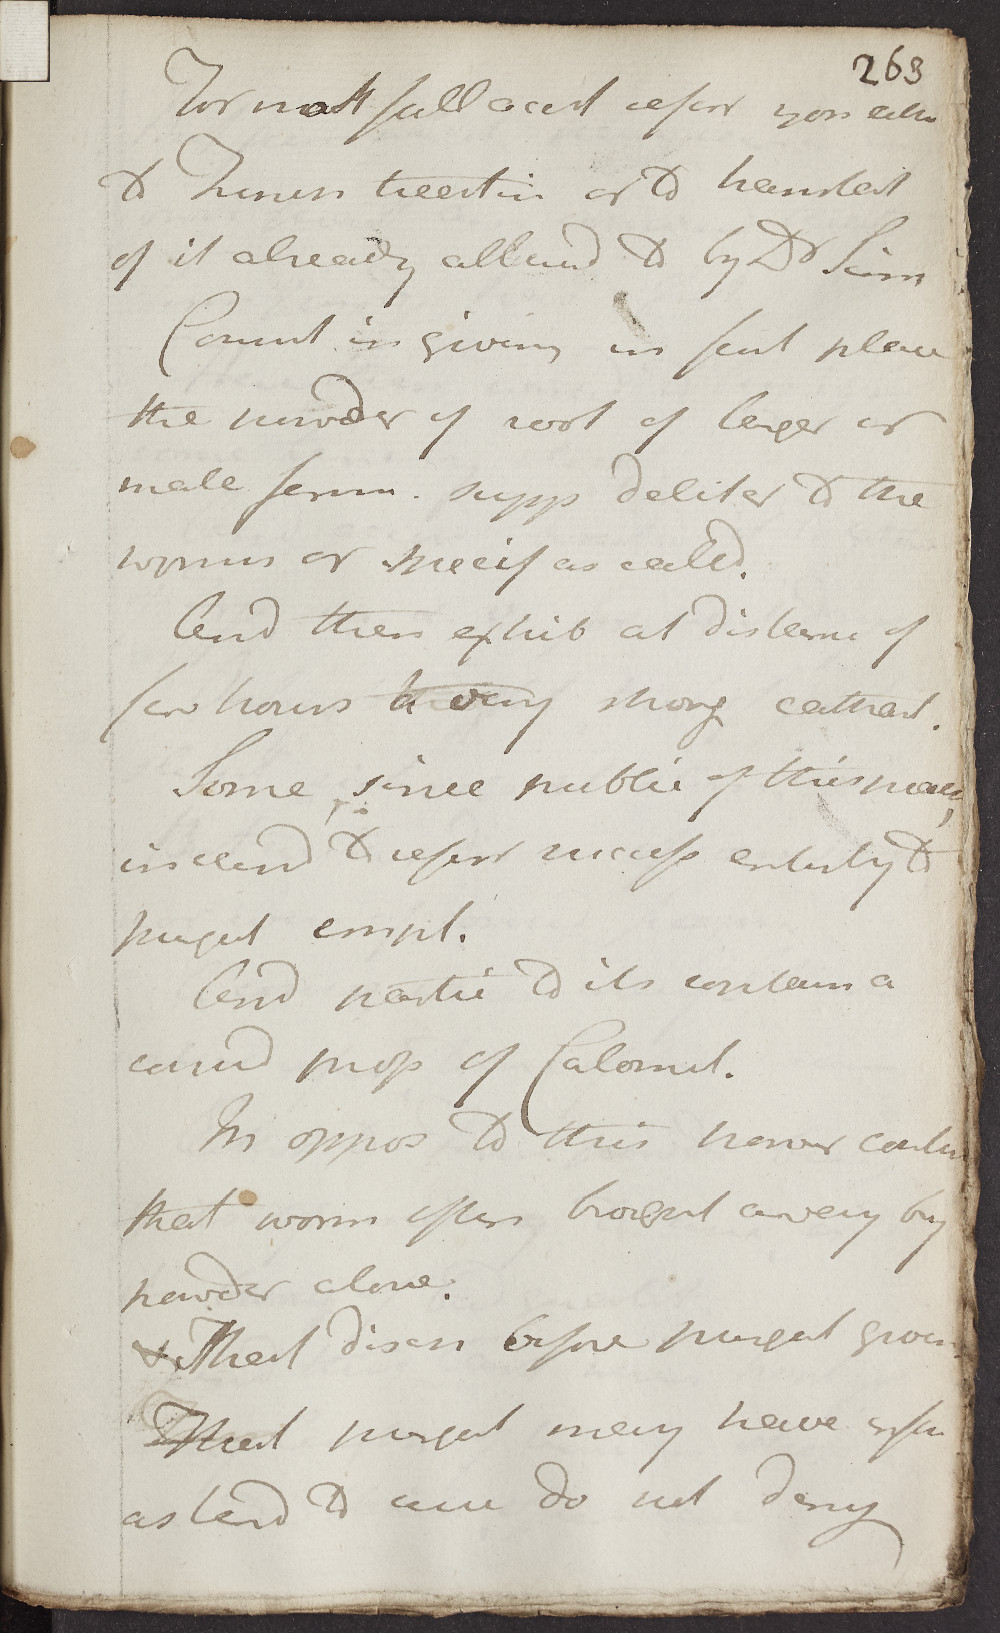 263
For most full acct refer you eithr
to Frenen treatis or to translat
of it already allud to by Dr Sim
Consist in giving in first place
the powder of root of larger or
male fern. supp deliter to the
worms or specif as calld.
And then exhib at distanc of
few hours a very strong cathart.
Some since public of this
inclind to refer success entirly to
purgat empl.
And partic to its contain a
consid prop of Calomel.
In oppos to this however
that worm often brought away by
powder alone.
That disch before purgat
That purgat may have
as tend to cure do not deny